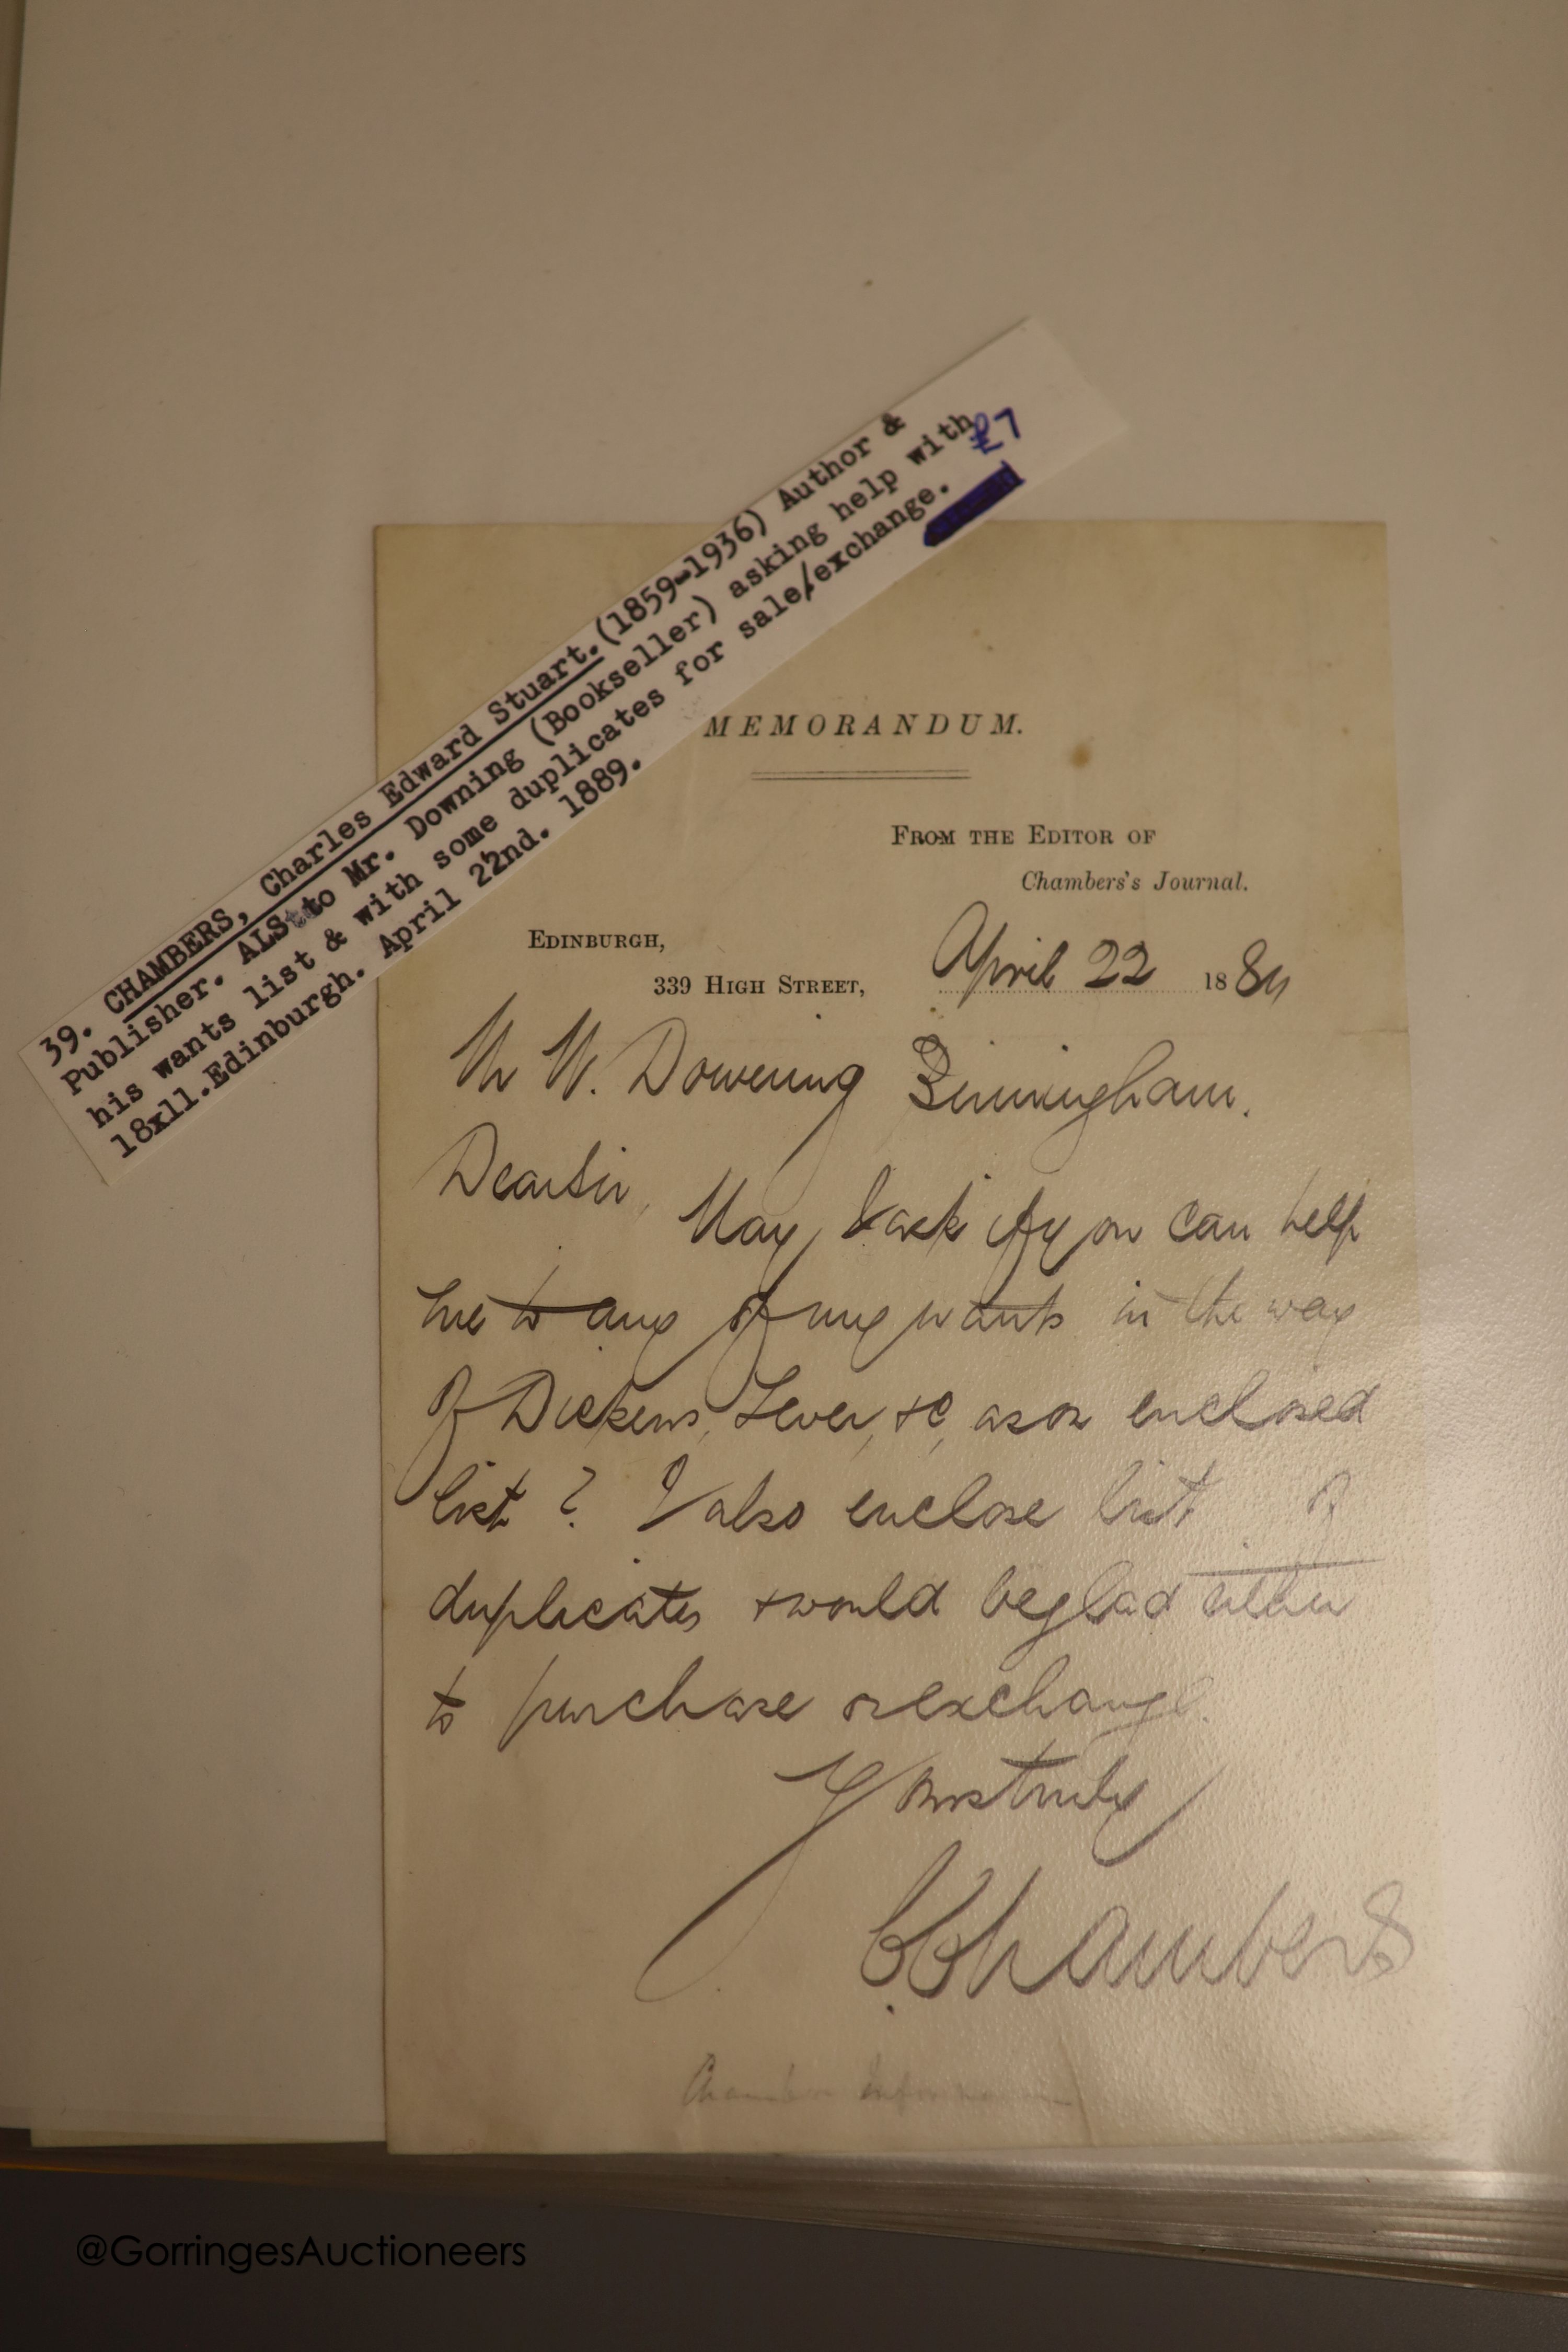 39. CHAMBERS, Charles Edward Stuart.(1859-1936) Author &
Publisher. ALS to Mr. Downing (Bookseller) asking help with
his wants list & with some duplicates for sale/exchange.
18x11.Edinburgh. April 22nd. 1889.
£7
MEMORANDUM.
FROM THE EDITOR OF
Chambers's Journal.
EDINBURGH,
339 HIGH STREET,
April 22 1889
Mr W. Downing Birmingham.
Dear Sir,
May I ask if you can help
me to any of my wants in the way
of Dickens, Lever, &c, as on enclosed
list? I also enclose list of
duplicates & would be glad either
to purchase or exchange.
Yours truly
C Chambers
@GorringesAuctioneers